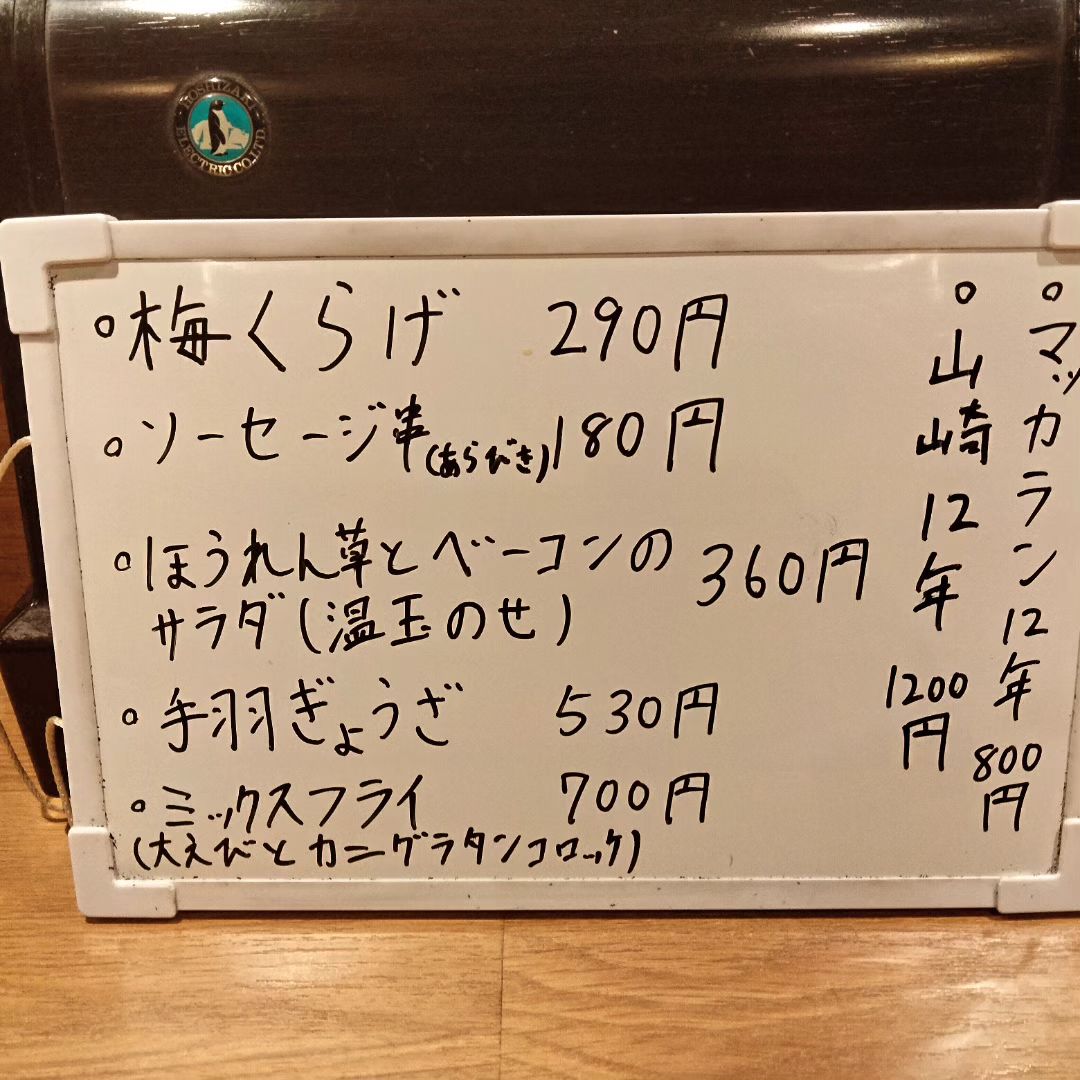 HOSHIZAKI ELECTRIC CO., LTD.
梅くらげ 290円
ソーセージ串(あらびき) 180円
ほうれん草とベーコンの
サラダ(温玉のせ) 360円
手羽ぎょうざ 530円
ミックスフライ 700円
(大えびとカニグラタンコロッケ)
マッカラン12年 800円
山崎12年 1200円